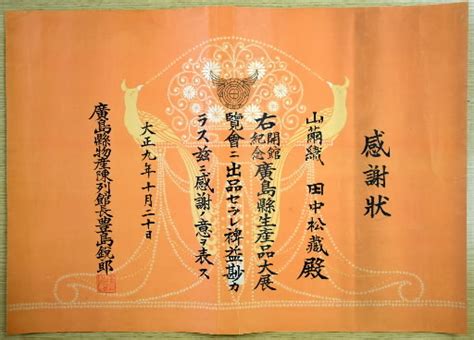 感謝狀
山繭織 田中松藏殿
右開館紀念廣島縣生産品大展
覽會ニ出品セラレ裨益尠カ
ラス玆ニ感謝ノ意ヲ表ス
大正九年十月二十日
廣島縣物産陳列館長豊島鋭郎